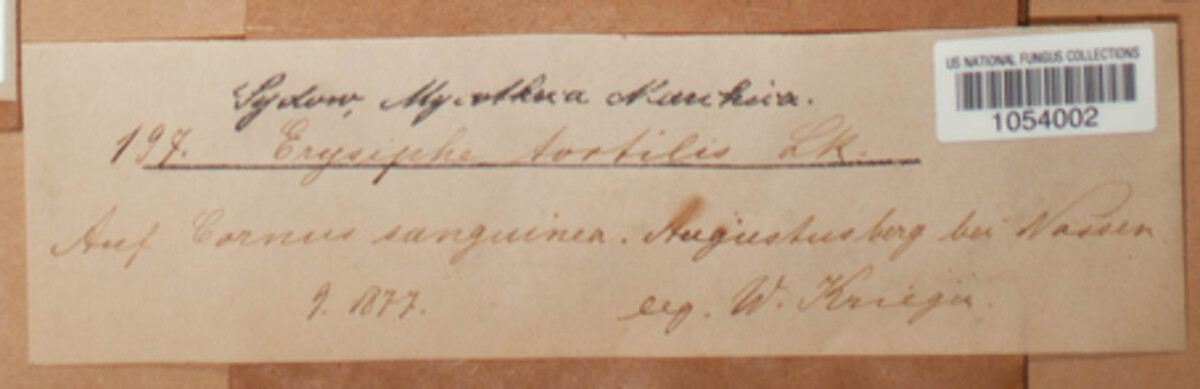 US NATIONAL FUNGUS COLLECTIONS
1054002
Sydow, Mycotheca Marchica.
197. Erysiphe tortilis Lk.
Auf Cornus sanguinea. Augustusberg bei Nossen
9. 1877. leg. W. Krieger.